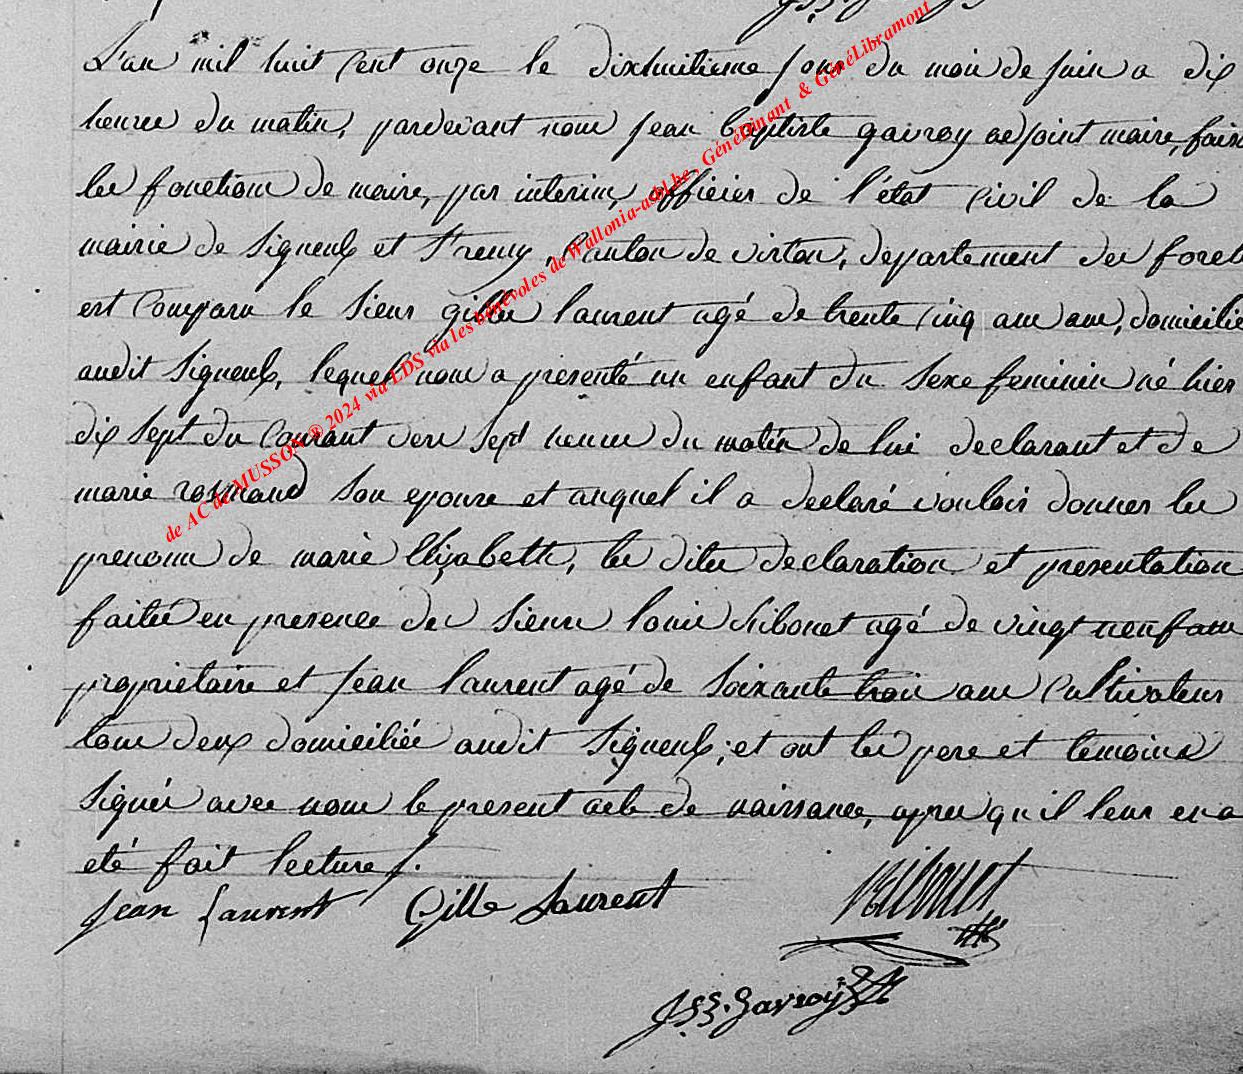 L'an mil huit Cent onze le dixhuitieme jour du mois de juin a dix
heures du matin, pardevant nous jean baptiste gavroy adjoint maire, fais
les fonctions de maire, par interim, officier de l'état Civil de la
mairie de Signeulx et St remy, Canton de virton, departement des forets
est Comparu le Sieur gilles laurent agé de trente Cinq ans ans, domicilié
audit Signeulx, lequel nous a presenté un enfant du Sexe feminin né hier
dix Sept du Courant vers Sept heures du matin de lui declarant et de
marie son epouse et auquel il a declaré vouloir donner les
prenoms de marie Elizabeth, les dites declaration et presentation
faites en presence des Sieurs louis Ribonet agé de vingt neuf ans
proprietaire et jean laurent agé de Soixante trois ans Cultivateur
tous deux domiciliés audit Signeulx, et ont les pere et temoins
Signés avec nous le present acte de naissance, apres qu'il leur en a
été fait lecture /.
jean Laurent Gille Laurent Ribonet
J B Gavroy
de AC de MUSSON ® 2024 via LDS via les bénévoles de Wallonia-asbl.be , GénéDinant & GénéLibramont